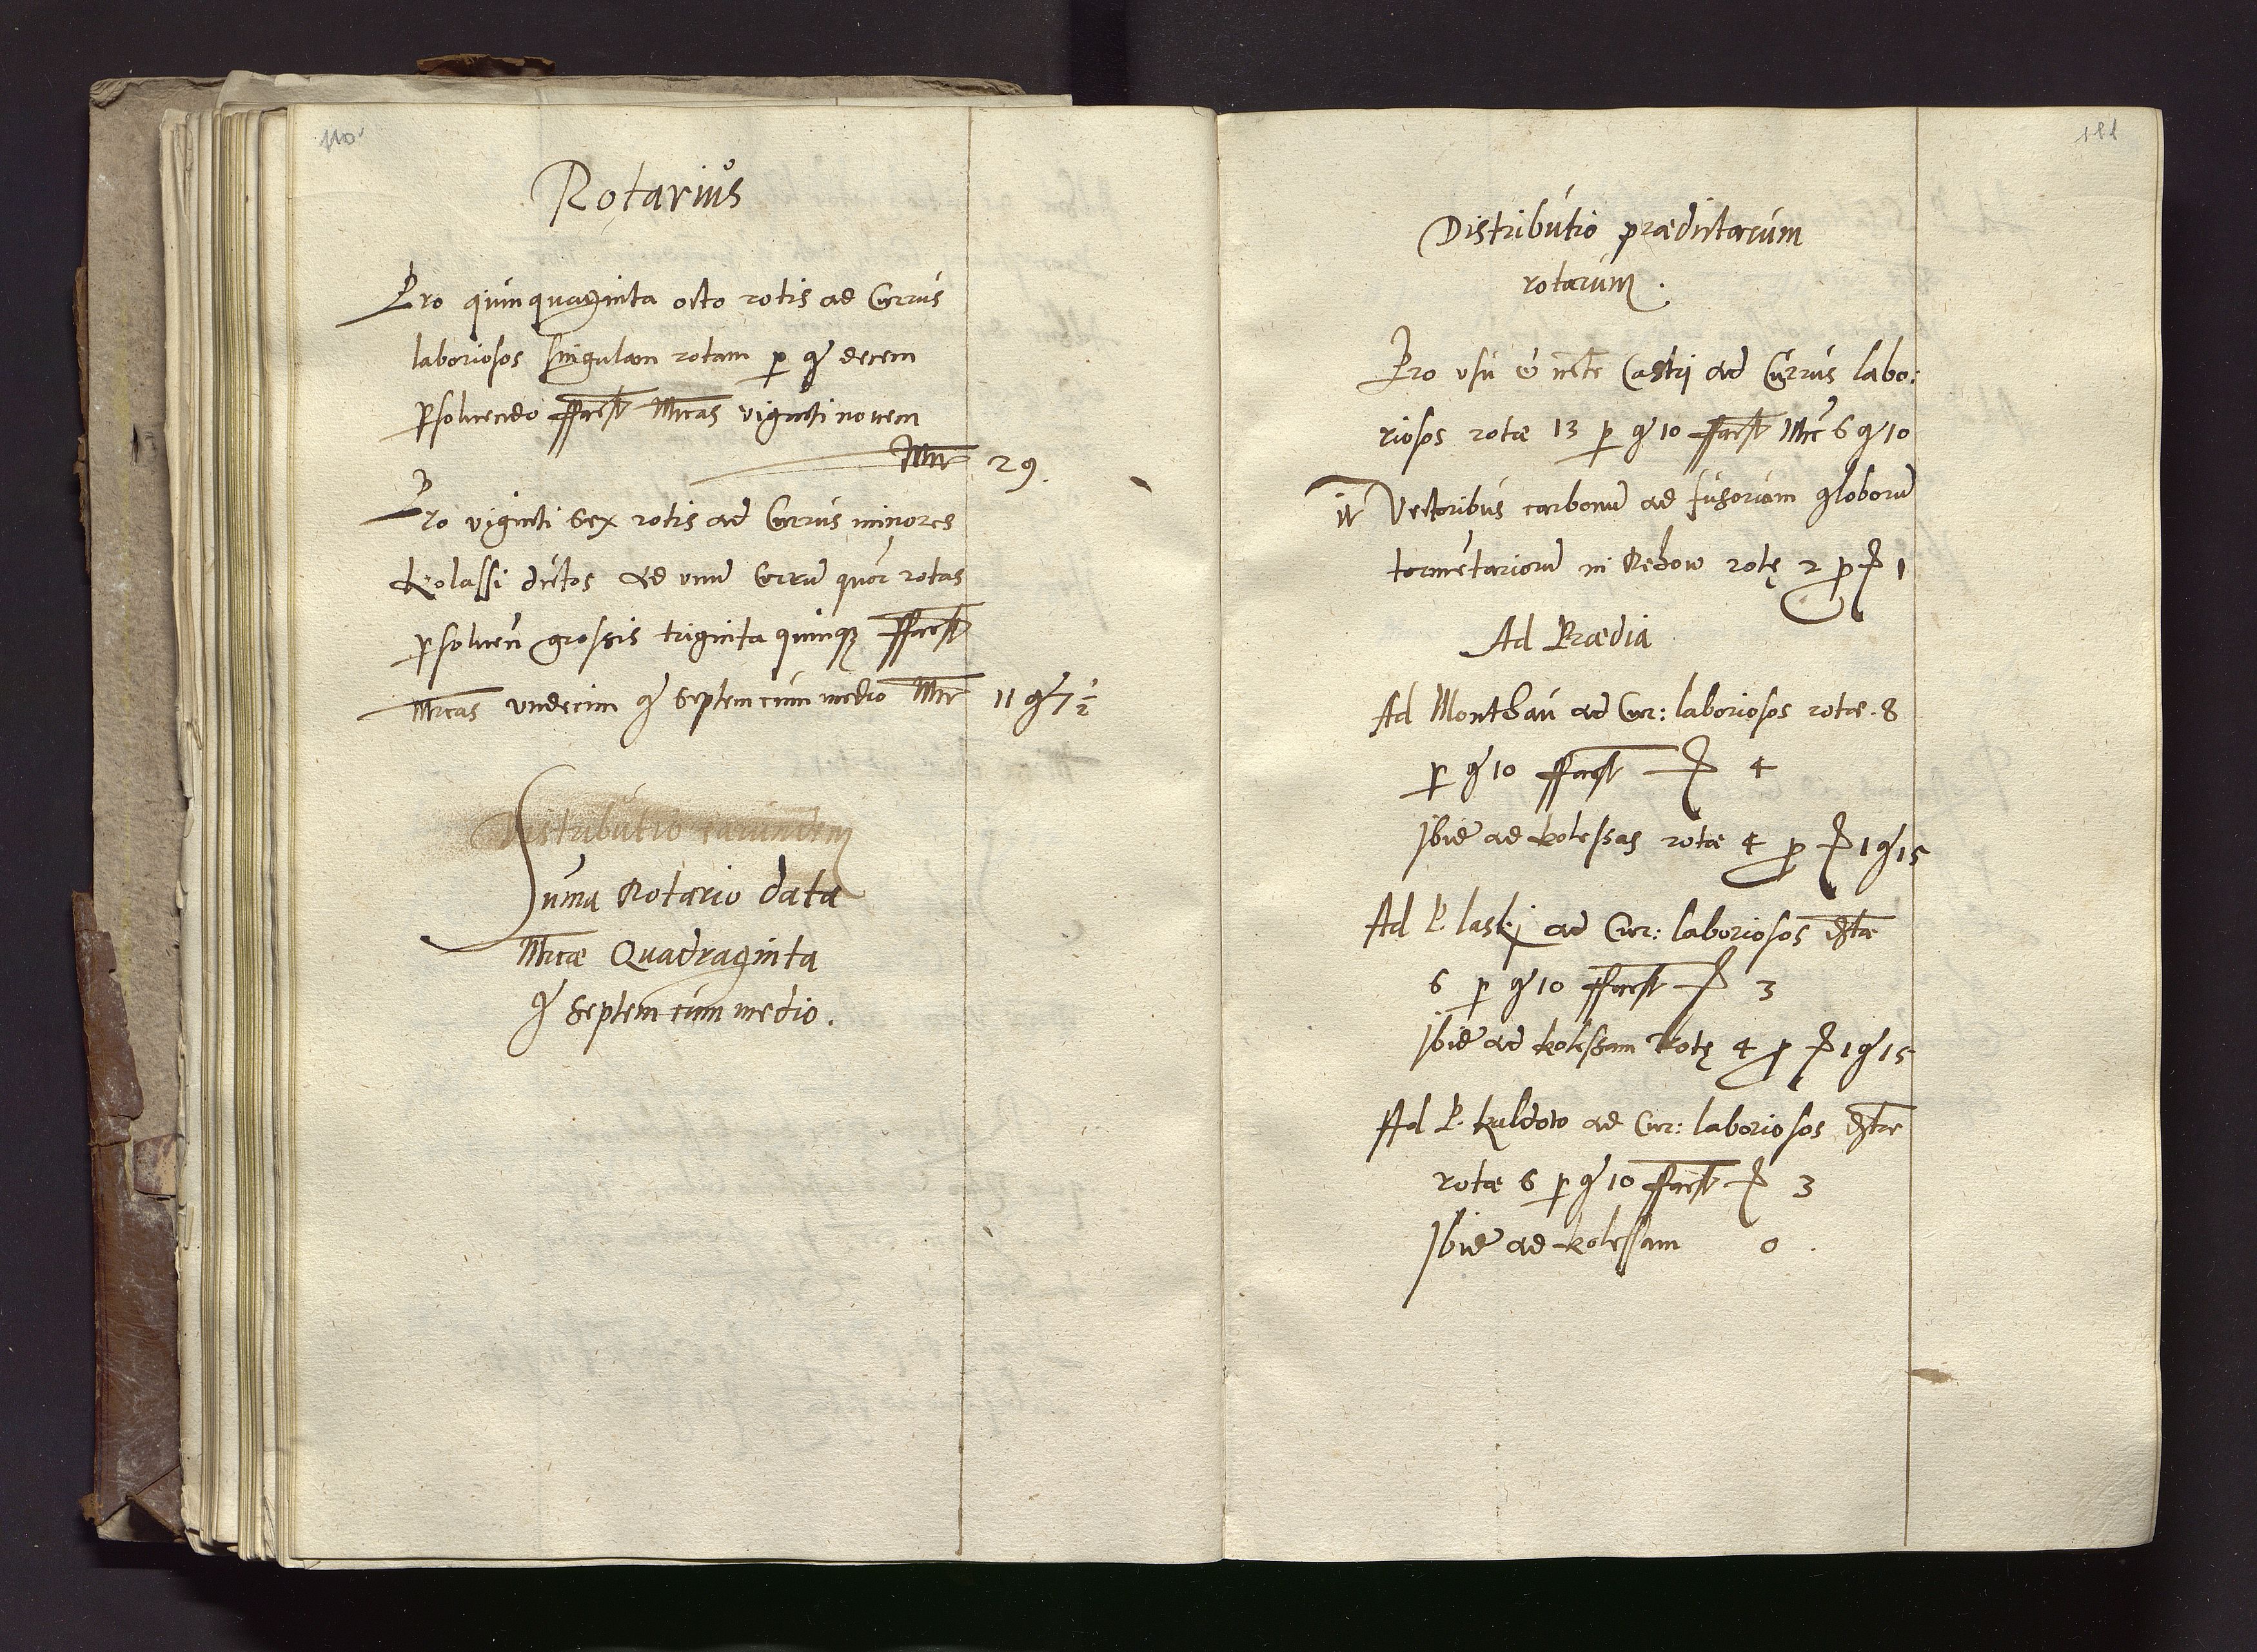 110
Rotarius
Pro quinquaginta octo rotis ad Currus
laboriosos singulam rotam p gr decem
psoluendo ffacst Mrcas viginti novem
Mrc 29.
Pro viginti sex rotis ad Currus minores
Kolassi dictos ad vnu Curru quor rotas
psoluen grossis triginta quinqz ffacst
Mrcas vndecim gr Septem cum medio Mrc 11 gr 7 1/2
Distributio earundem
Suma Rotario data
Mrcæ Quadraginta
gr Septem cum medio.
111
Distributio prædictarum
rotarum.
Pro vsu Castri ad Currus labo:
riosos rotæ 13 p gr 10 ffacst Mrc 6 gr 10
It Vectoribus carbonu ad fusoriam globoru
tormetarioru in Rehow rotę 2 p f 1
Ad Prædia
Ad Monthau ad Cur: laboriosos rotæ. 8
p gr 10 ffacst f 4
Ibid ad kolessas rotæ 4 p f 1 gr 15
Ad P. laskj ad Cur: laboriosos
6 p gr 10 ffacst f 3
Ibid ad kolessam Rotę 4 p f 1 gr 15
Ad P. Kaldowo ad Cur: laboriosos
rotæ 6 p gr 10 ffacst f 3
Ibid ad kolessam 0.